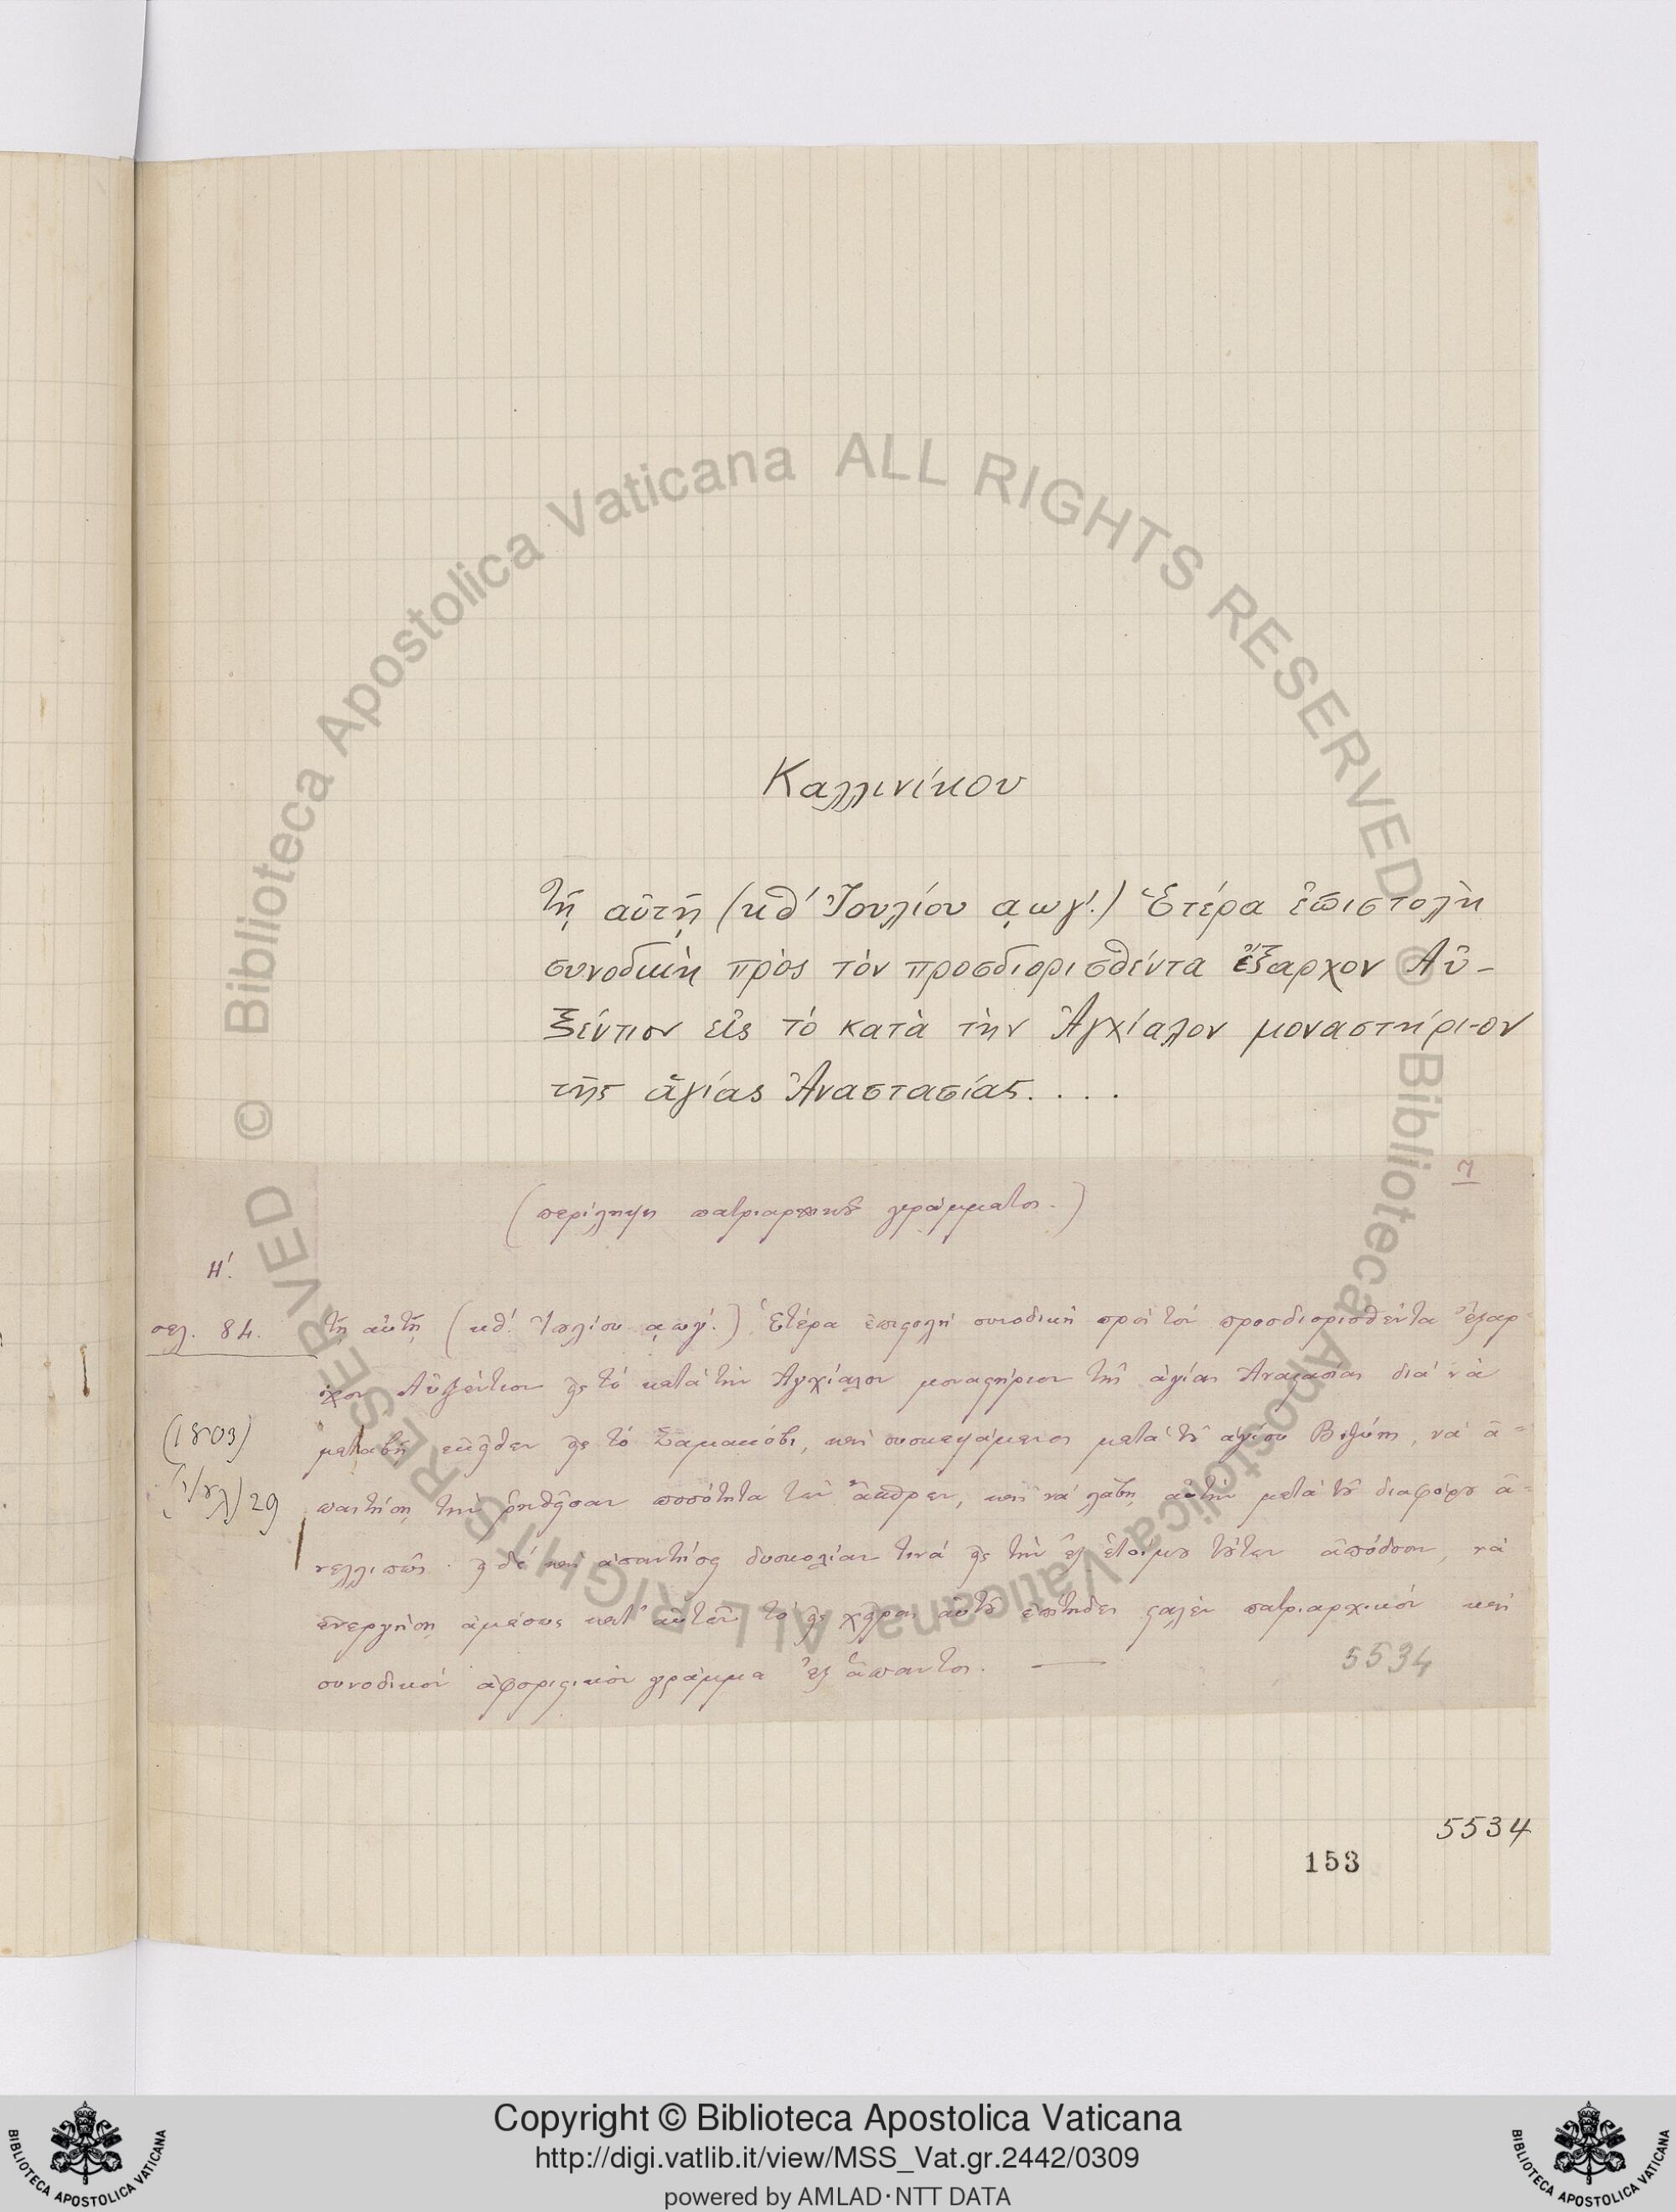 Καλλινίκου
τῇ αὐτῇ (κθ´ Ἰουλίου ͵αωγ´.) Ἑτέρα ἐπιστολὴ
συνοδικὴ πρὸς τὸν προσδιορισθέντα ἔξαρχον Αὐ-
ξέντιον εἰς τὸ κατὰ τὴν Ἀγχίαλον μοναστήριον
τῆς ἁγίας Ἀναστασίας....
7
(περίληψις πατριαρχικοῦ γράμματος.)
Η´.
σελ. 84. τῇ αὐτῇ (κθ´. Ἰουλίου ͵αωγ´.) Ἑτέρα ἐπιστολὴ συνοδικὴ πρὸς τὸν προσδιορισθέντα ἔξαρ-
χον Αὐξέντιον εἰς τὸ κατὰ τὴν Ἀγχίαλον μοναστήριον τῆς ἁγίας Ἀναστασίας διὰ νὰ
(1803) μεταβῇ ἐκεῖθεν εἰς τὸ Σαμακόβι, καὶ συσκεψάμενος μετὰ τοῦ ἁγίου Βιζύης, νὰ ἀ-
29 παιτήσῃ τὴν ῥηθεῖσαν ποσότητα τῶν ἄσπρων, καὶ νὰ λάβῃ αὐτὴν μετὰ τοῦ διαφόρου ἀ-
νελλιπῶς. εἰ δὲ καὶ ἀπαντήσῃ δυσκολίαν τινὰ εἰς τὴν ἐξ ἑτοίμου τούτων ἀπόδοσιν, νὰ
ἐνεργήσῃ ἀμέσως κατ᾽ αὐτῶν τὸ εἰς χεῖρας αὐτοῦ ἐπίτηδες σταλὲν πατριαρχικὸν καὶ
συνοδικὸν ἀφοριστικὸν γράμμα ἐξ ἅπαντος. —
5534
5534
153
Copyright © Biblioteca Apostolica Vaticana
http://digi.vatlib.it/view/MSS_Vat.gr.2442/0309
powered by AMLAD·NTT DATA
BIBLIOTECA APOSTOLICA VATICANA
BIBLIOTECA APOSTOLICA VATICANA
© Biblioteca Apostolica Vaticana ALL RIGHTS RESERVED © Biblioteca Apostolica Vaticana ALL RIGHTS RESERVED